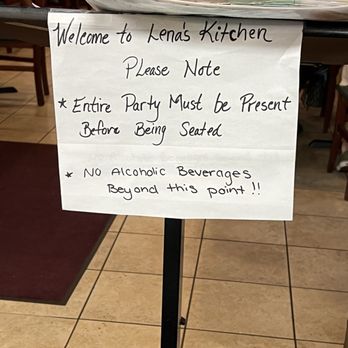 Welcome to Lena's Kitchen
Please Note
* Entire Party Must be Present
Before Being Seated
* No Alcoholic Beverages
Beyond this point !!